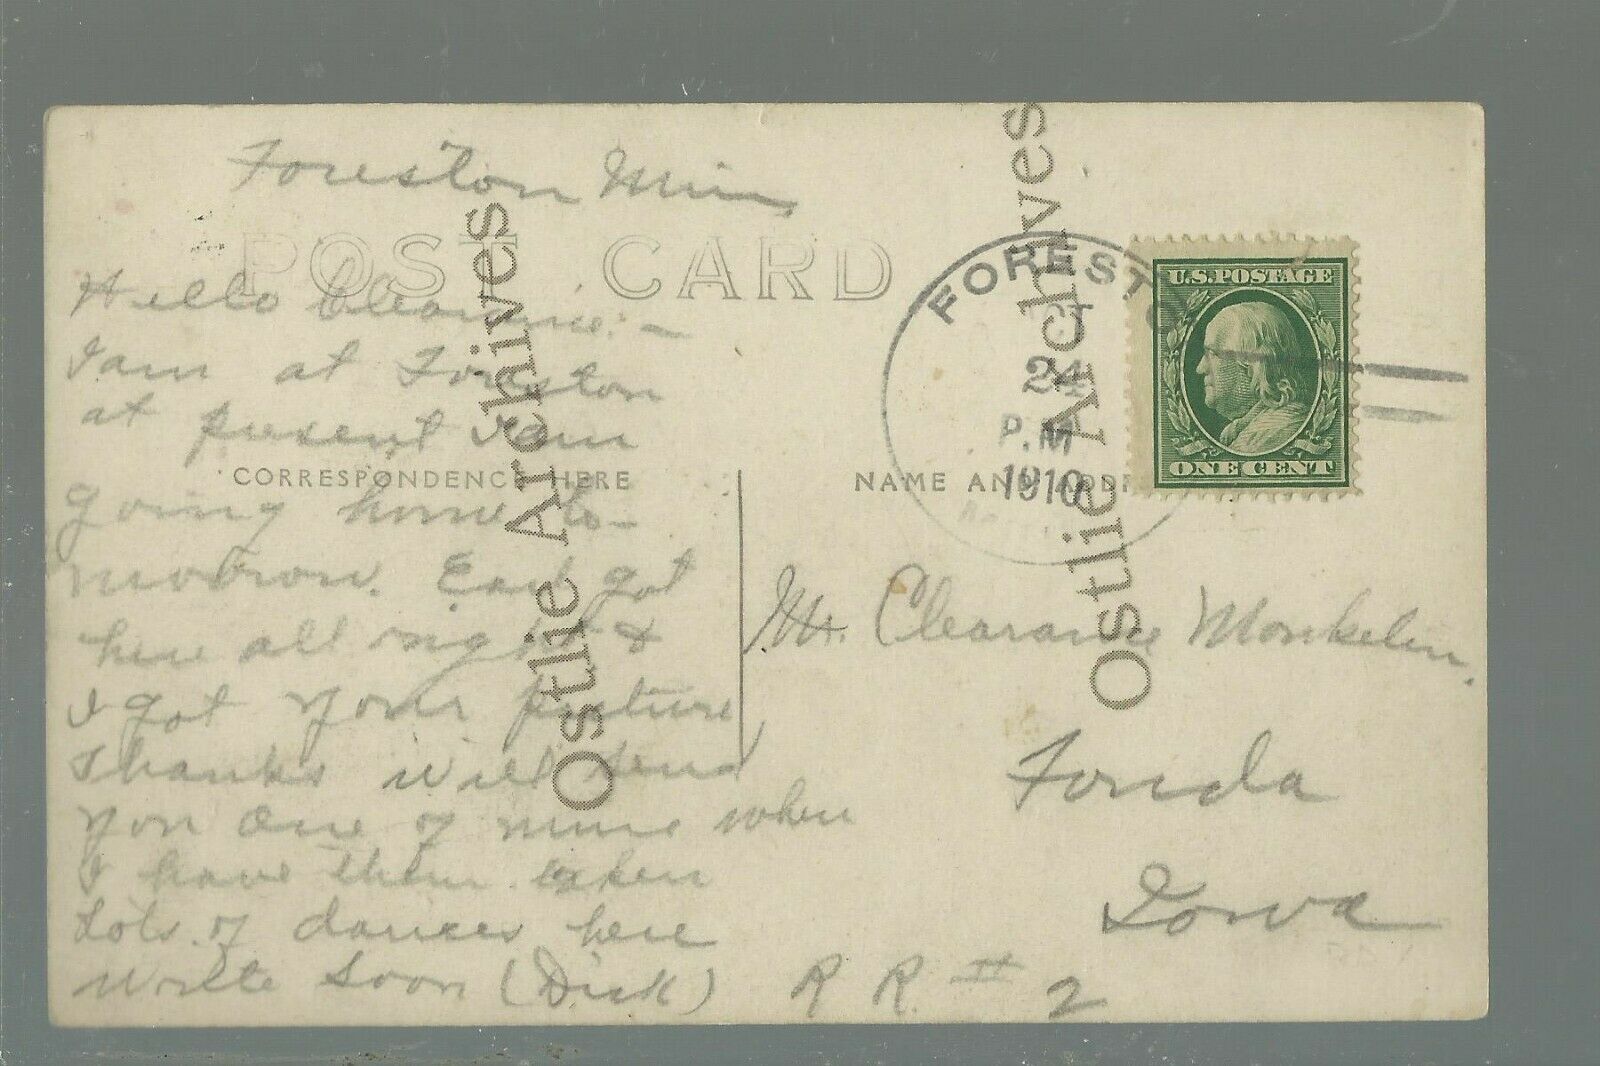 Foreston Minn,
POST CARD
Hello Clearance: –
I am at Foreston
at present I am
CORRESPONDENCE HERE
going home to-
morrow. Earl got
here all right &
I got your picture,
Thanks will send
you one of mine when
I have them taken
Lots of dances here
Write Soon (Dick)
FOREST
24
P.M
1910
U.S. POSTAGE
ONE CENT
NAME AND ADDR
Mr. Clearance Monkelien.
Fonda
Iowa
R R. # 2
Ostlie Archives
Ostlie Archives